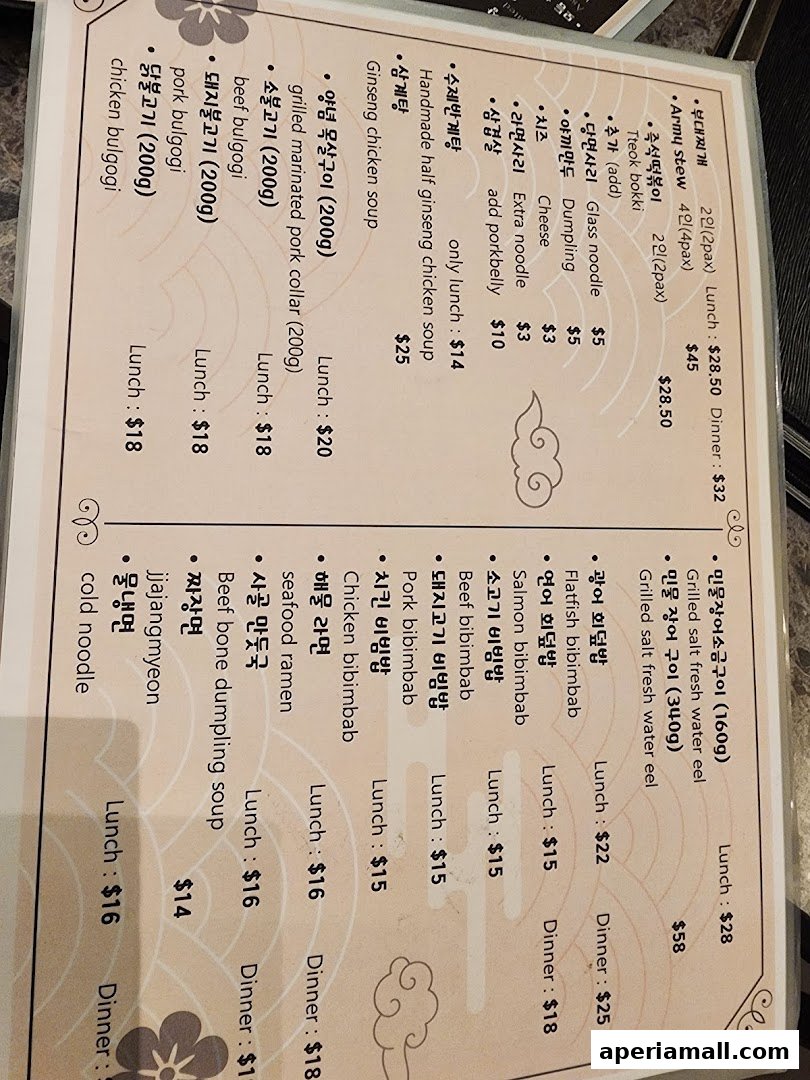 • 부대찌개 2인(2pax) Lunch : $28.50 Dinner : $32
• Army stew 4인(4pax) $45
• 즉석떡볶이 2인(2pax) $28.50
Tteok bokki
• 추가 (add)
• 당면사리 Glass noodle $5
• 야끼만두 Dumpling $5
• 치즈 Cheese $3
• 라면사리 Extra noodle $3
• 삼겹살 add porkbelly $10
• 수제반계탕 only lunch : $14
Handmade half ginseng chicken soup
• 삼계탕 $25
Ginseng chicken soup
• 양념 목살구이 (200g) Lunch : $20
grilled marinated pork collar (200g)
• 소불고기 (200g) Lunch : $18
beef bulgogi
• 돼지불고기 (200g) Lunch : $18
pork bulgogi
• 닭불고기 (200g) Lunch : $18
chicken bulgogi
• 민물장어소금구이 (160g) Lunch : $28
Grilled salt fresh water eel
• 민물 장어 구이 (340g) $58
Grilled salt fresh water eel
• 광어 회덮밥 Lunch : $22 Dinner : $25
Flatfish bibimbab
• 연어 회덮밥 Lunch : $15 Dinner : $18
Salmon bibimbab
• 소고기 비빔밥 Lunch : $15
Beef bibimbab
• 돼지고기 비빔밥 Lunch : $15
Pork bibimbab
• 치킨 비빔밥 Lunch : $15
Chicken bibimbab
• 해물 라면 Lunch : $16 Dinner : $18
seafood ramen
• 사골 만둣국 Lunch : $16 Dinner : $1
Beef bone dumpling soup
• 짜장면 $14
jjajangmyeon
• 물냉면 Lunch : $16 Dinner :
cold noodle
aperiamall.com